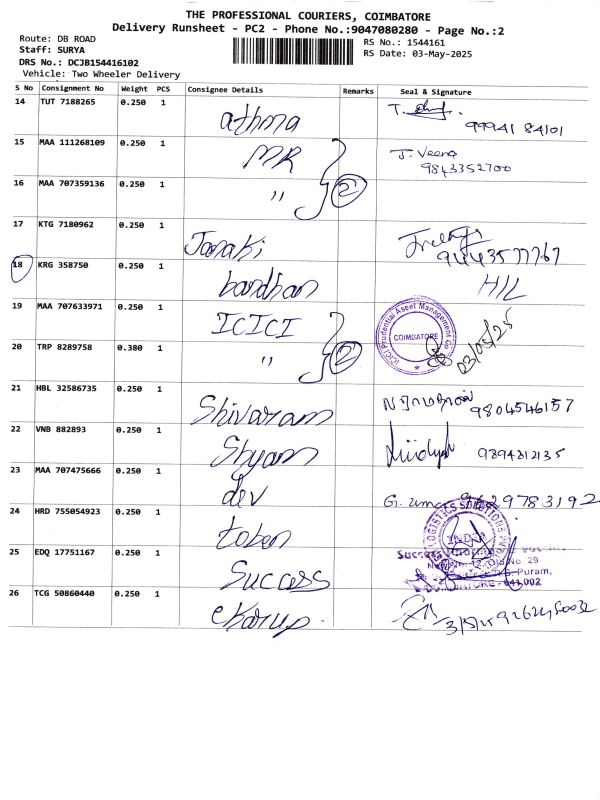 THE PROFESSIONAL COURIERS, COIMBATORE
Delivery Runsheet - PC2 - Phone No.:9047080280 - Page No.:2
Route: DB ROAD
Staff: SURYA
DRS No.: DCJB154416102
Vehicle: Two Wheeler Delivery
RS No.: 1544161
RS Date: 03-May-2025
S No Consignment No Weight PCS Consignee Details Remarks Seal & Signature
14 TUT 7188265 0.250 1 athma 99941 84101
15 MAA 111268109 0.250 1 MR J. Veena 9843352700
16 MAA 707359136 0.250 1 " 2
17 KTG 7180962 0.250 1 Janaki 9443577767
18 KRG 358750 0.250 1 bandhan H/L
19 MAA 707633971 0.250 1 ICICI
ICICI Prudential Asset Management Co
COIMBATORE
03/05/25
20 TRP 8289758 0.380 1 " 2
21 HBL 32586735 0.250 1 Shivaram 9804546157
22 VNB 882893 0.250 1 Shyam 9894212135
23 MAA 707475666 0.250 1 dev G. uma 9629783192
24 HRD 755054923 0.250 1
LOGISTICS SOLUTIONS
25 EDQ 17751167 0.250 1 Success
Success
No 29
Puram,
641 002
26 TCG 50860440 0.250 1